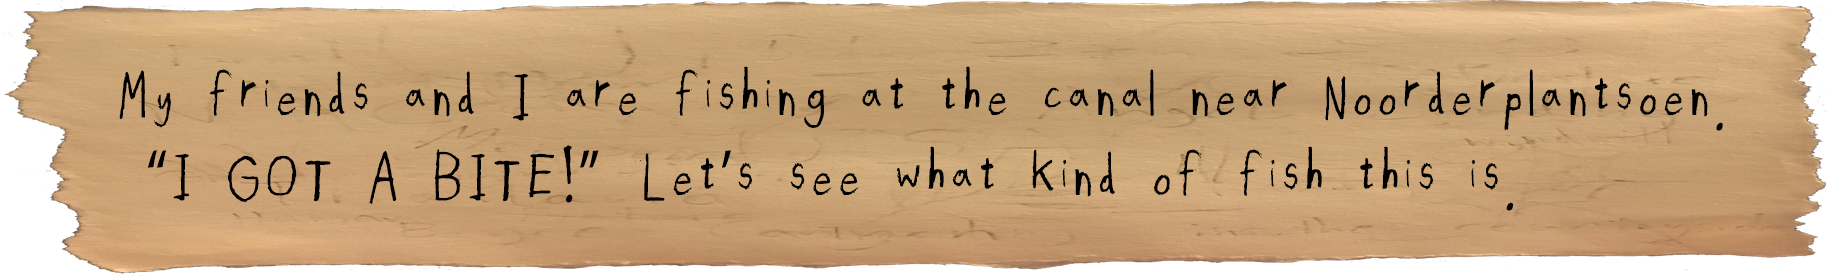 My friends and I are fishing at the canal near Noorderplantsoen.
“I GOT A BITE!” Let's see what kind of fish this is.